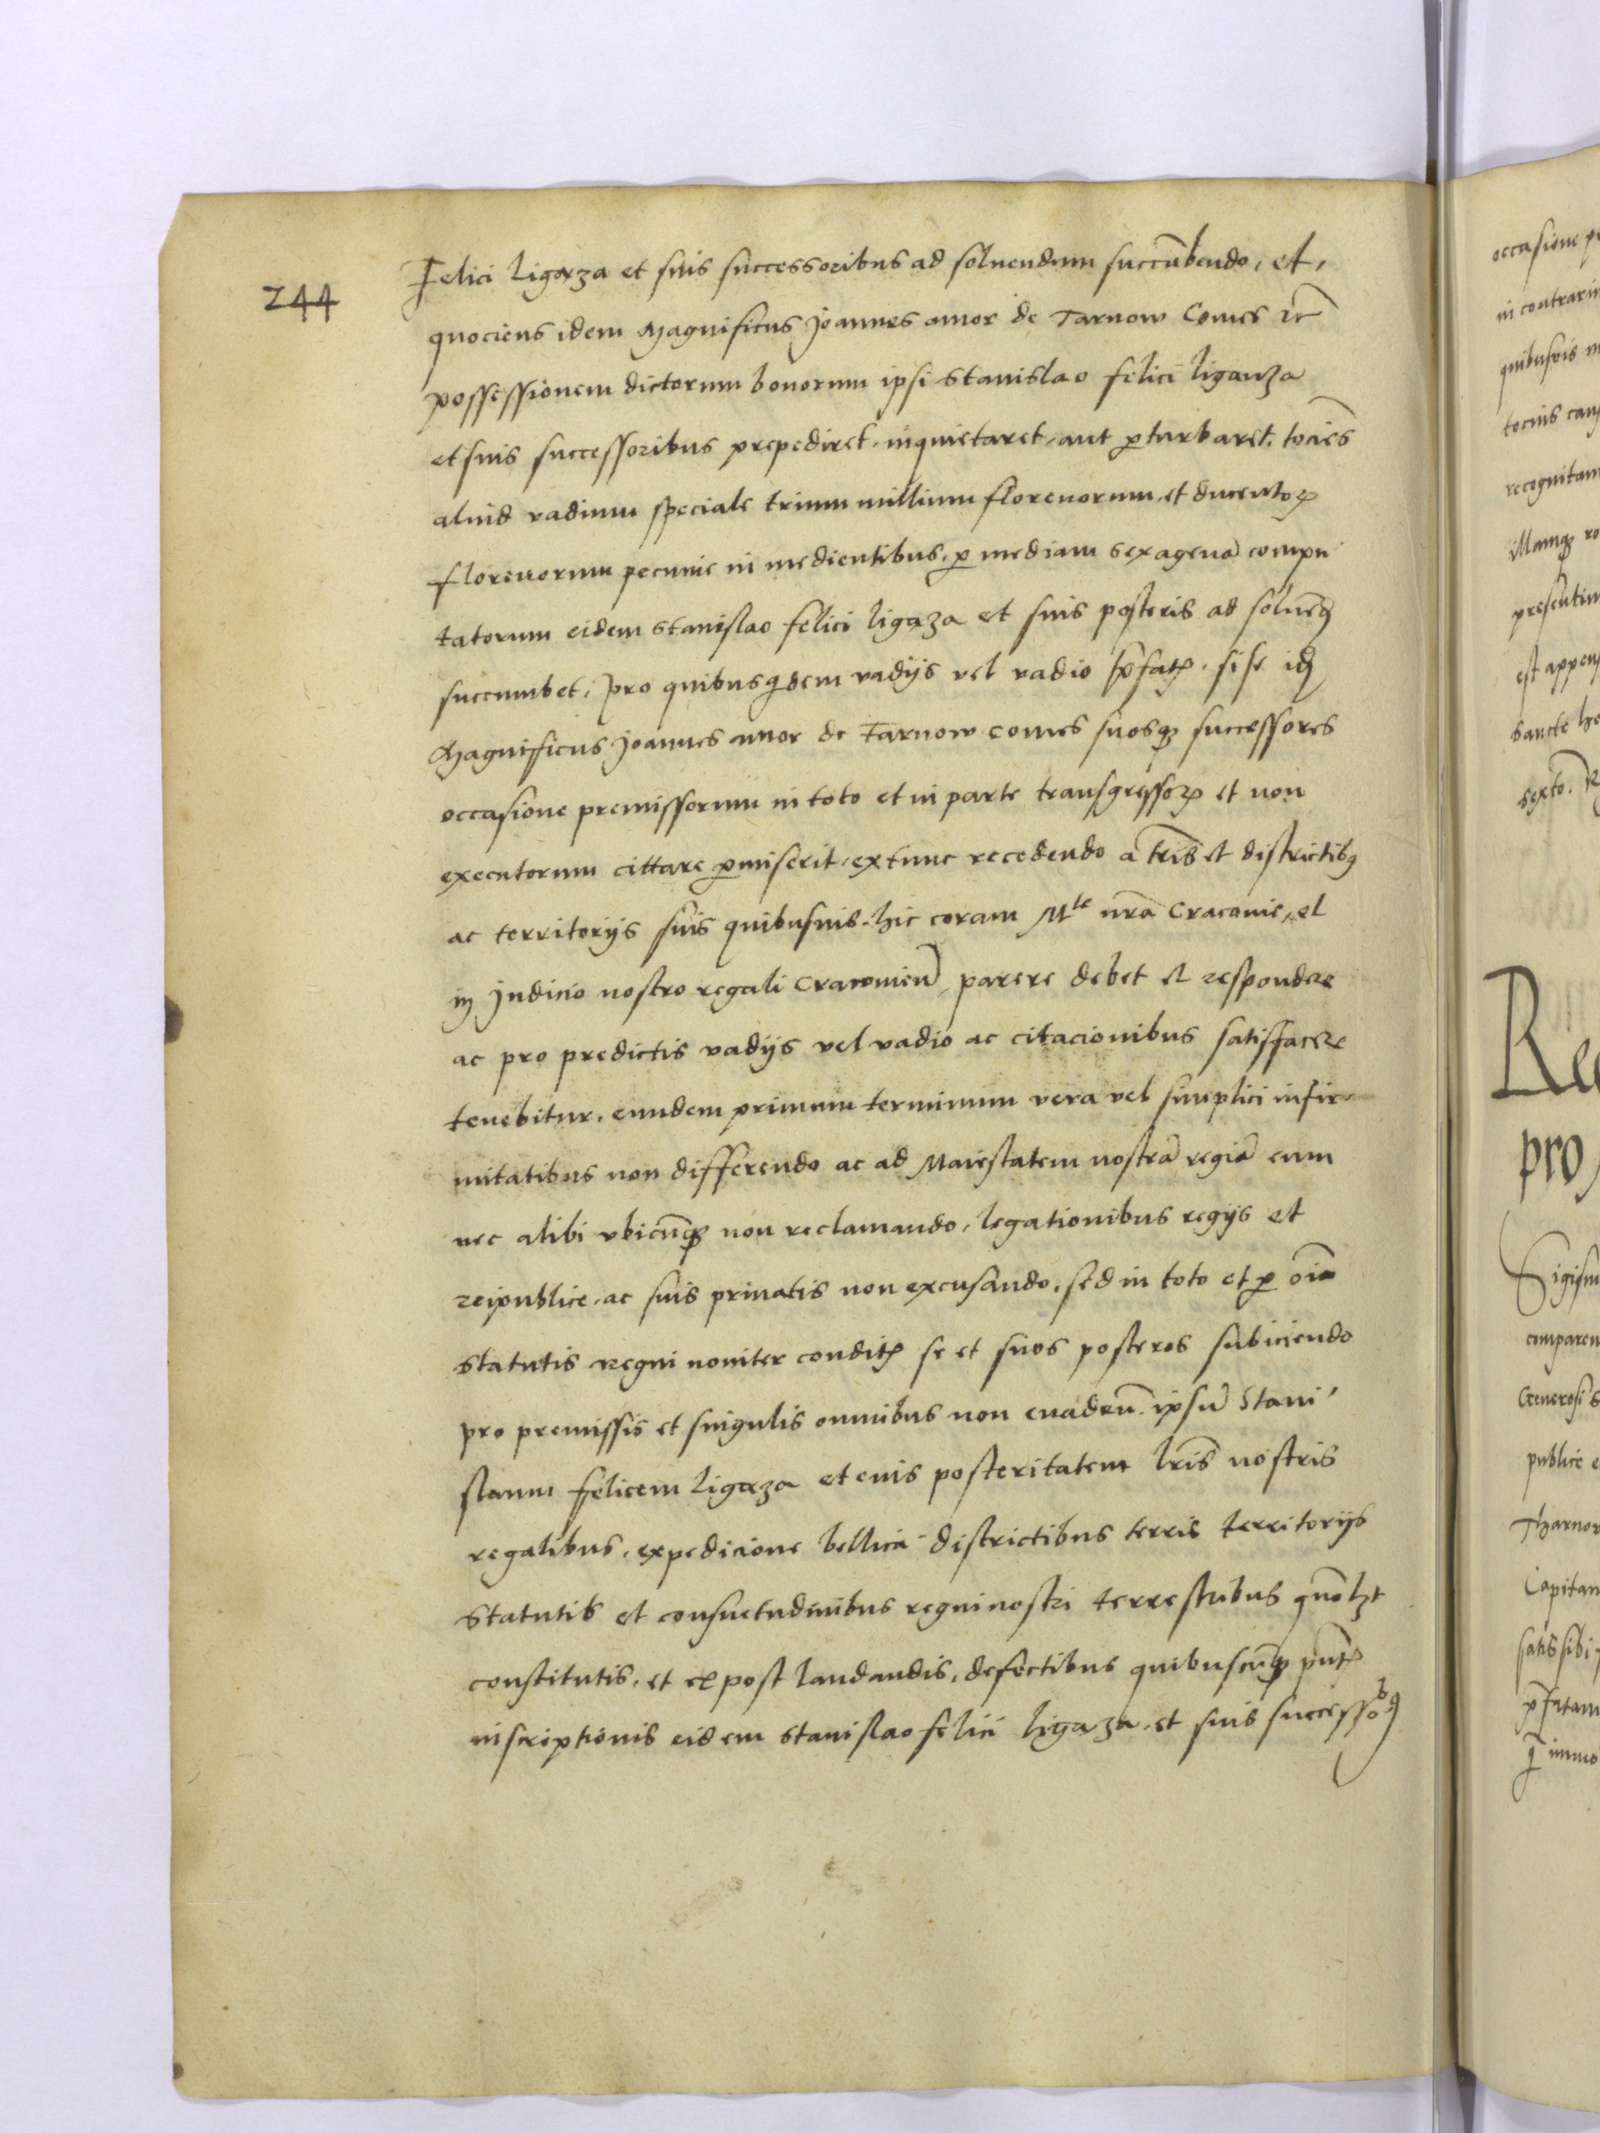 244
Felici ligąza et suis successoribus ad soluendum succūbendo, et,
quociens idem Magnificus Joannes amor de Tarnow Comes rc̄
possessionem dictorum bonorum ipsi Stanislao felici liganza
et suis successoribus prepediret, inquietaret, aut ꝑturbaret, tociēs
aliud vadium speciale trium millium florenorum, et ducentoꝝ
florenorum pecunie in medientibus, ꝑ mediam sexagenā compu
tatorum eidem Stanislao felici ligąza et suis posteris ad soluēđ
succumbet, Pro quibusq̃dem vadijs vel vadio p̄fatꝭ, si se iđ
Magnificus Joannes amor de Tarnow comes suosqꝫ successores
occasione premissorum in toto et in parte transgressoꝝ et non
executorum cittare ꝑmiserit, extunc recedendo a tr̄is et districtibꝯ
ac territorijs suis quibusuis, hic coram Mte nr̄a Cracouie, et
in Judicio nostro regali Cracouień parere debet et respondere
ac pro predictis vadijs vel vadio ac citacionibus satisfacere
tenebitur, eundem primum terminum vera vel simplici infir
mitatibus non differendo ac ad Maiestatem nostrā regiā eum
nec alibi vbicūqꝫ non reclamando, legationibus regijs et
reipublice, ac suis priuatis non excusando, sed in toto et ꝑ oīa
statutis regni nouiter conditꝭ se et suos posteros subiciendo
pro premissis et singulis omnibus non euadeń. ipsū Stani
slaum felicem ligąza et euis posteritatem lr̄is nostris
regalibus, expedicione bellica districtibus terris territorijs
statutis et consuetudinibus regni nostri terrestribus quōlꝫt
constitutis, et ex post laudandis, defectibus quibuscūqꝫ pn̄tꝭ
inscriptionis eidem Stanislao felici ligąza, et suis successobꝯ
occasione
in contrari
quibusuis
tocius
recognitam
presentim
est appen
sexto.
pro
Sigism
comparen
Generosi S
publice
Tharnow
Capitan
satis sibi
p̄fatam